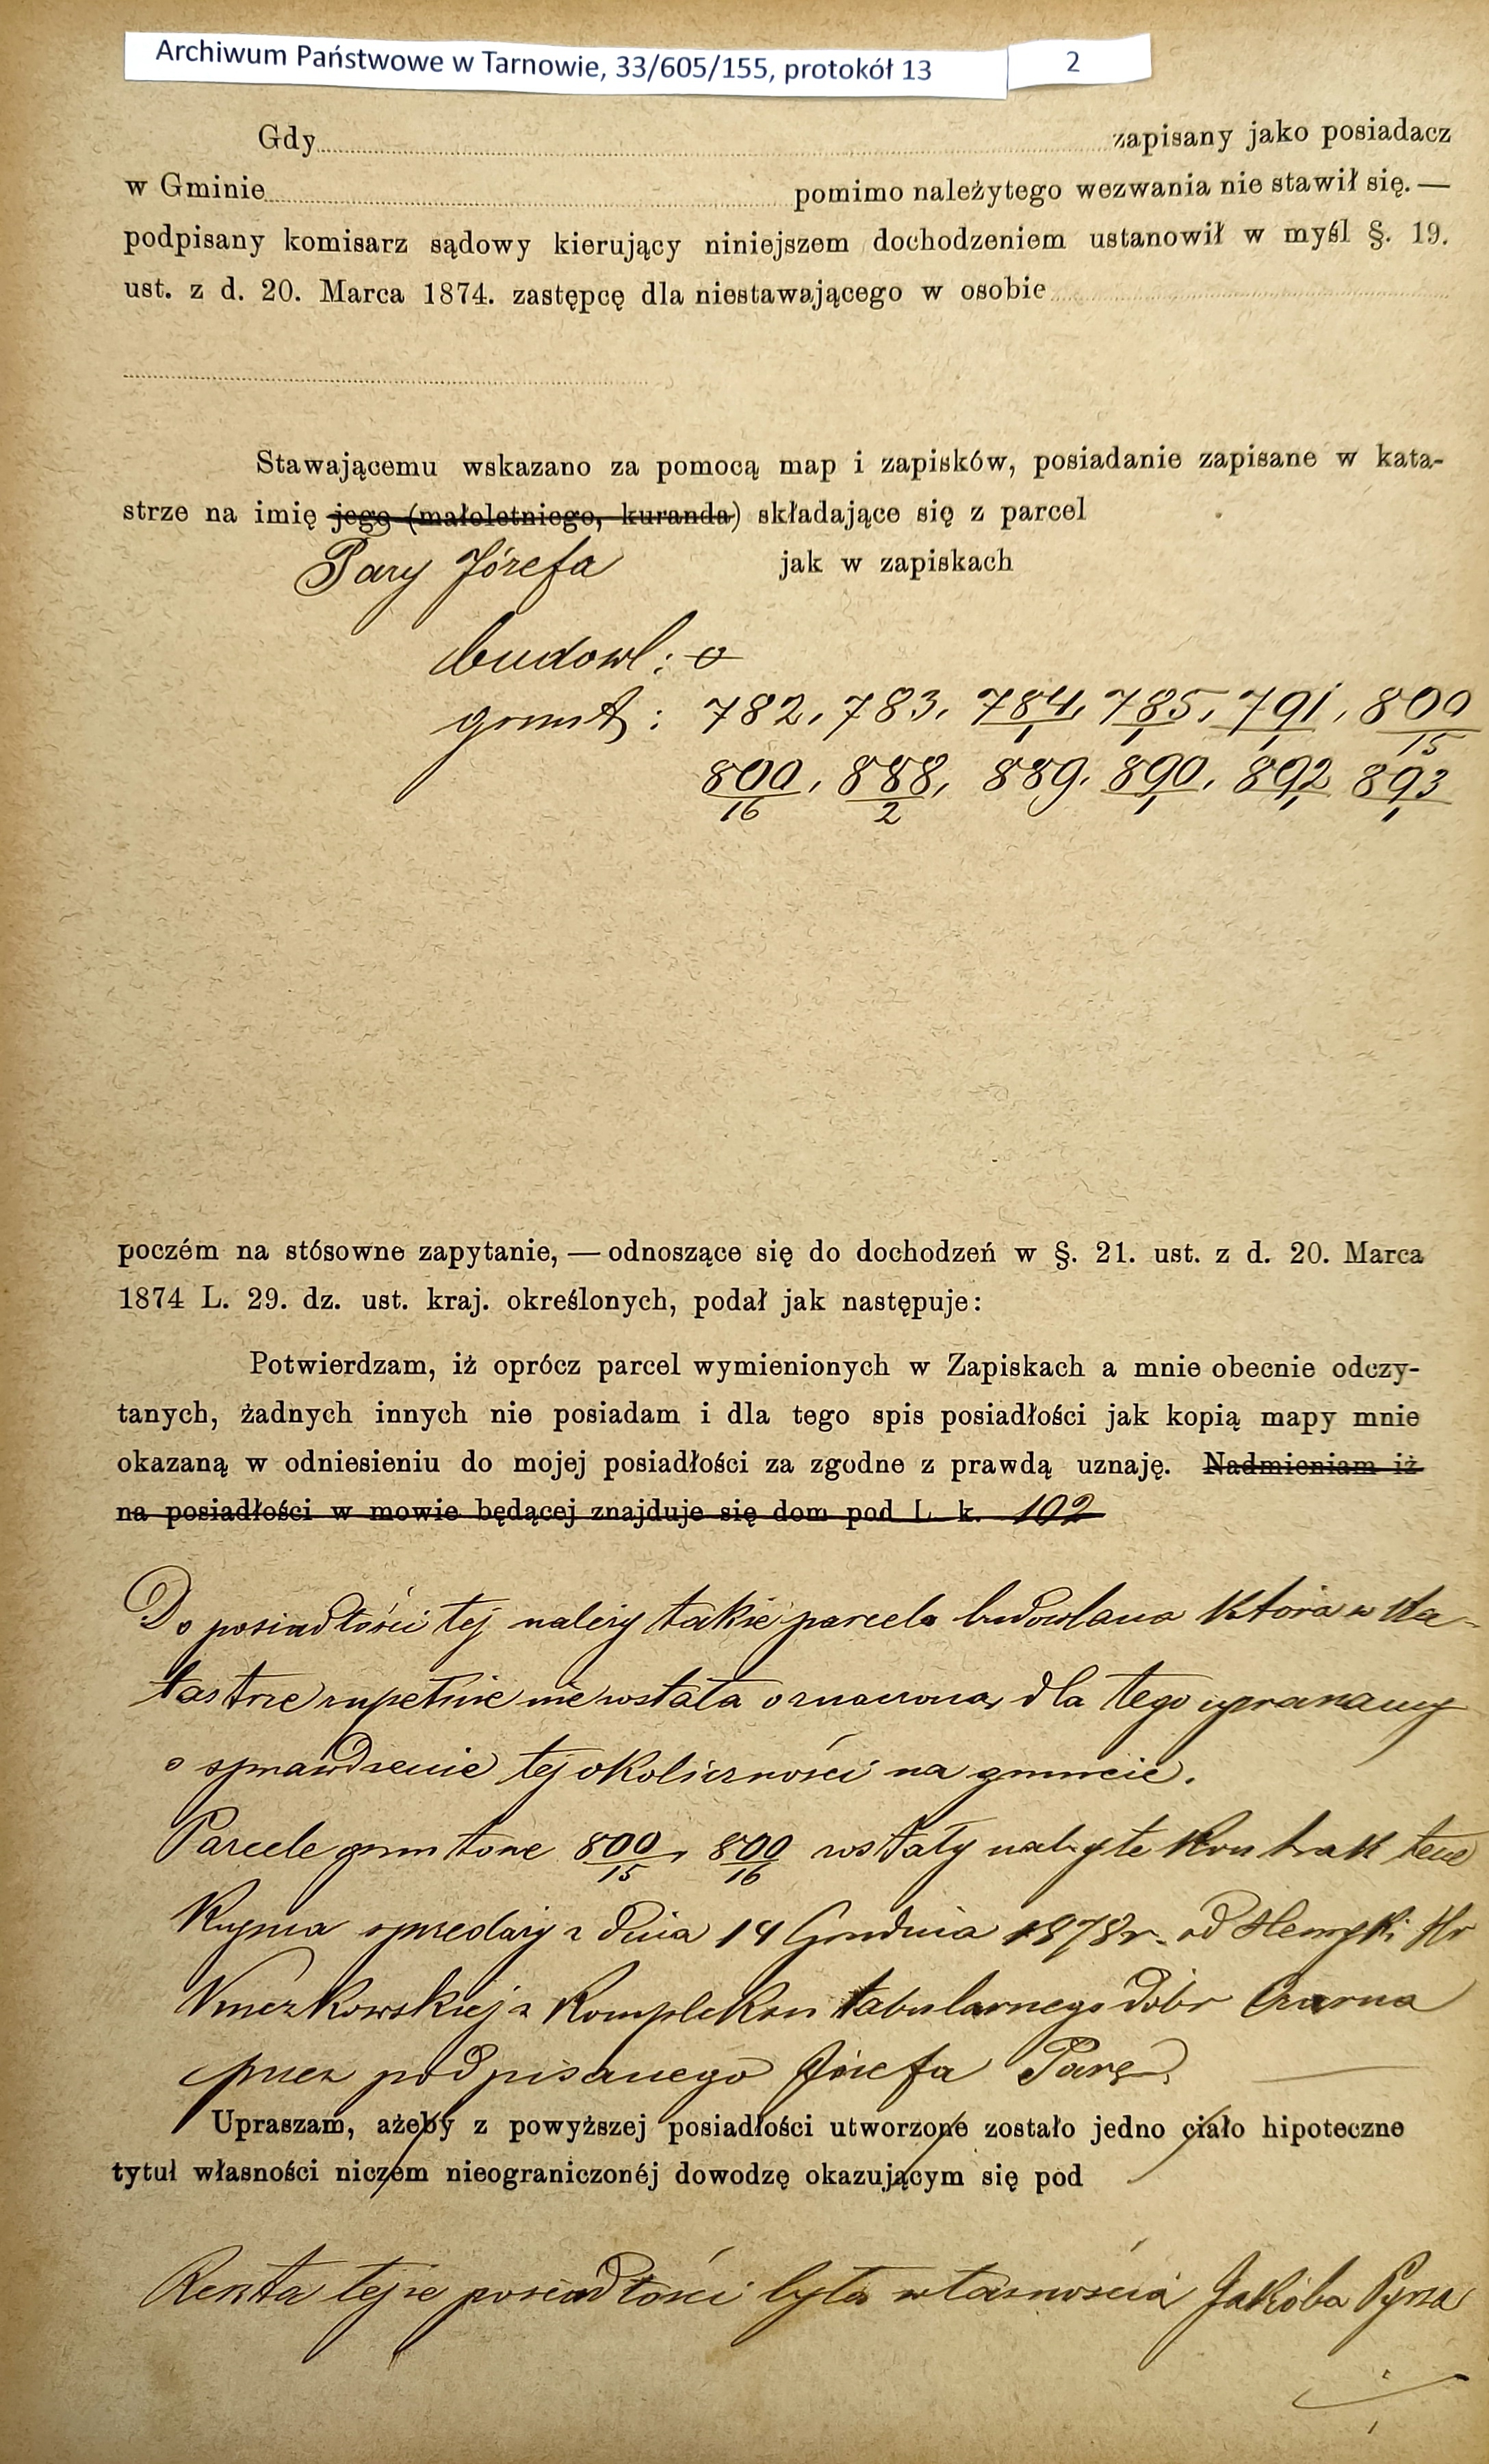 Archiwum Państwowe w Tarnowie, 33/605/155, protokół 13 2
Gdy zapisany jako posiadacz
w Gminie pomimo należytego wezwania nie stawił się. —
podpisany komisarz sądowy kierujący niniejszem dochodzeniem ustanowił w myśl §. 19.
ust. z d. 20. Marca 1874. zastępcę dla niestawającego w osobie
Stawającemu wskazano za pomocą map i zapisków, posiadanie zapisane w kata-
strze na imię jego (małoletniego, kuranda) składające się z parcel
Pary Józefa jak w zapiskach
budowl: o
grunt: 782, 783, 784/1, 785/1, 791/1, 800/15
800/16, 888/2, 889, 890/1, 892/1, 893/1
poczém na stósowne zapytanie, — odnoszące się do dochodzeń w §. 21. ust. z d. 20. Marca
1874 L. 29. dz. ust. kraj. określonych, podał jak następuje:
Potwierdzam, iż oprócz parcel wymienionych w Zapiskach a mnie obecnie odczy-
tanych, żadnych innych nie posiadam i dla tego spis posiadłości jak kopią mapy mnie
okazaną w odniesieniu do mojej posiadłości za zgodne z prawdą uznaję. Nadmieniam iż
na posiadłości w mowie będącej znajduje się dom pod L. k. 102
Do posiadłości tej należy także parcela budowlana która w Ka-
tastrze zupełnie nie została oznaczona, dla tego upraszamy
o sprawdzenie tej okoliczności na gruncie.
Parcele gruntowe 800/15, 800/16 zostały nabyte kontraktem
Kupna sprzedaży z dnia 14 Grudnia 1878 r. od Hr
z Kompleksu tabularnego dóbr Czarna
przez podpisanego Józefa Parę
Upraszam, ażeby z powyższej posiadłości utworzone zostało jedno ciało hipoteczne
tytuł własności niczém nieograniczonéj dowodzę okazującym się pod
Reszta tejże posiadłości była własnością Jakóba Pyrza